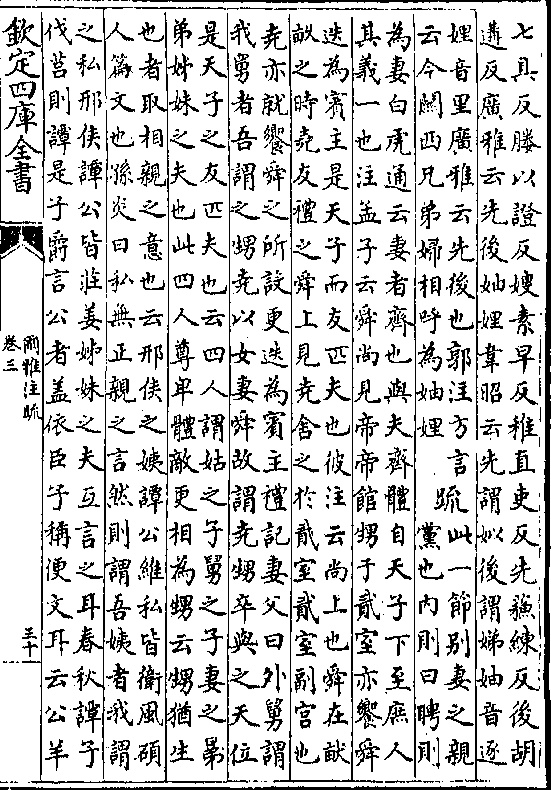 七具反媵以證反嫂素早反稚直吏反先蘓練反後胡
遘反廣雅云先後妯娌韋昭云先謂姒後謂娣妯音逐
娌音里廣雅云先後也郭注方言
云今闗西兄弟婦相呼為妯娌
疏
此一節别妻之親
黨也内則曰聘則
為妻白虎通云妻者齊也與夫齊體自天子下至庶人
其義一也注孟子云舜尚見帝帝館甥于貳室亦饗舜
迭為賓主是天子而友匹夫也彼注云尚上也舜在畎
畝之時堯友禮之舜上見堯舍之於貳室貳室副宫也
堯亦就饗舜之所設更迭為賓主禮記妻父曰外舅謂
我舅者吾謂之甥堯以女妻舜故謂堯甥卒與之天位
是天子之友匹夫也云四人謂姑之子舅之子妻之晜
弟姊妹之夫也此四人尊卑體敵更相為甥云甥猶生
也者取相親之意也云邢侯之姨譚公維私皆衛風碩
人篇文也孫炎曰私無正親之言然則謂吾姨者我謂
之私邢侯譚公皆莊姜姊妹之夫互言之耳春秋譚子
伐莒則譚是子爵言公者盖依臣子稱便文耳云公羊
欽定四庫全書
爾雅注疏
卷三
三十